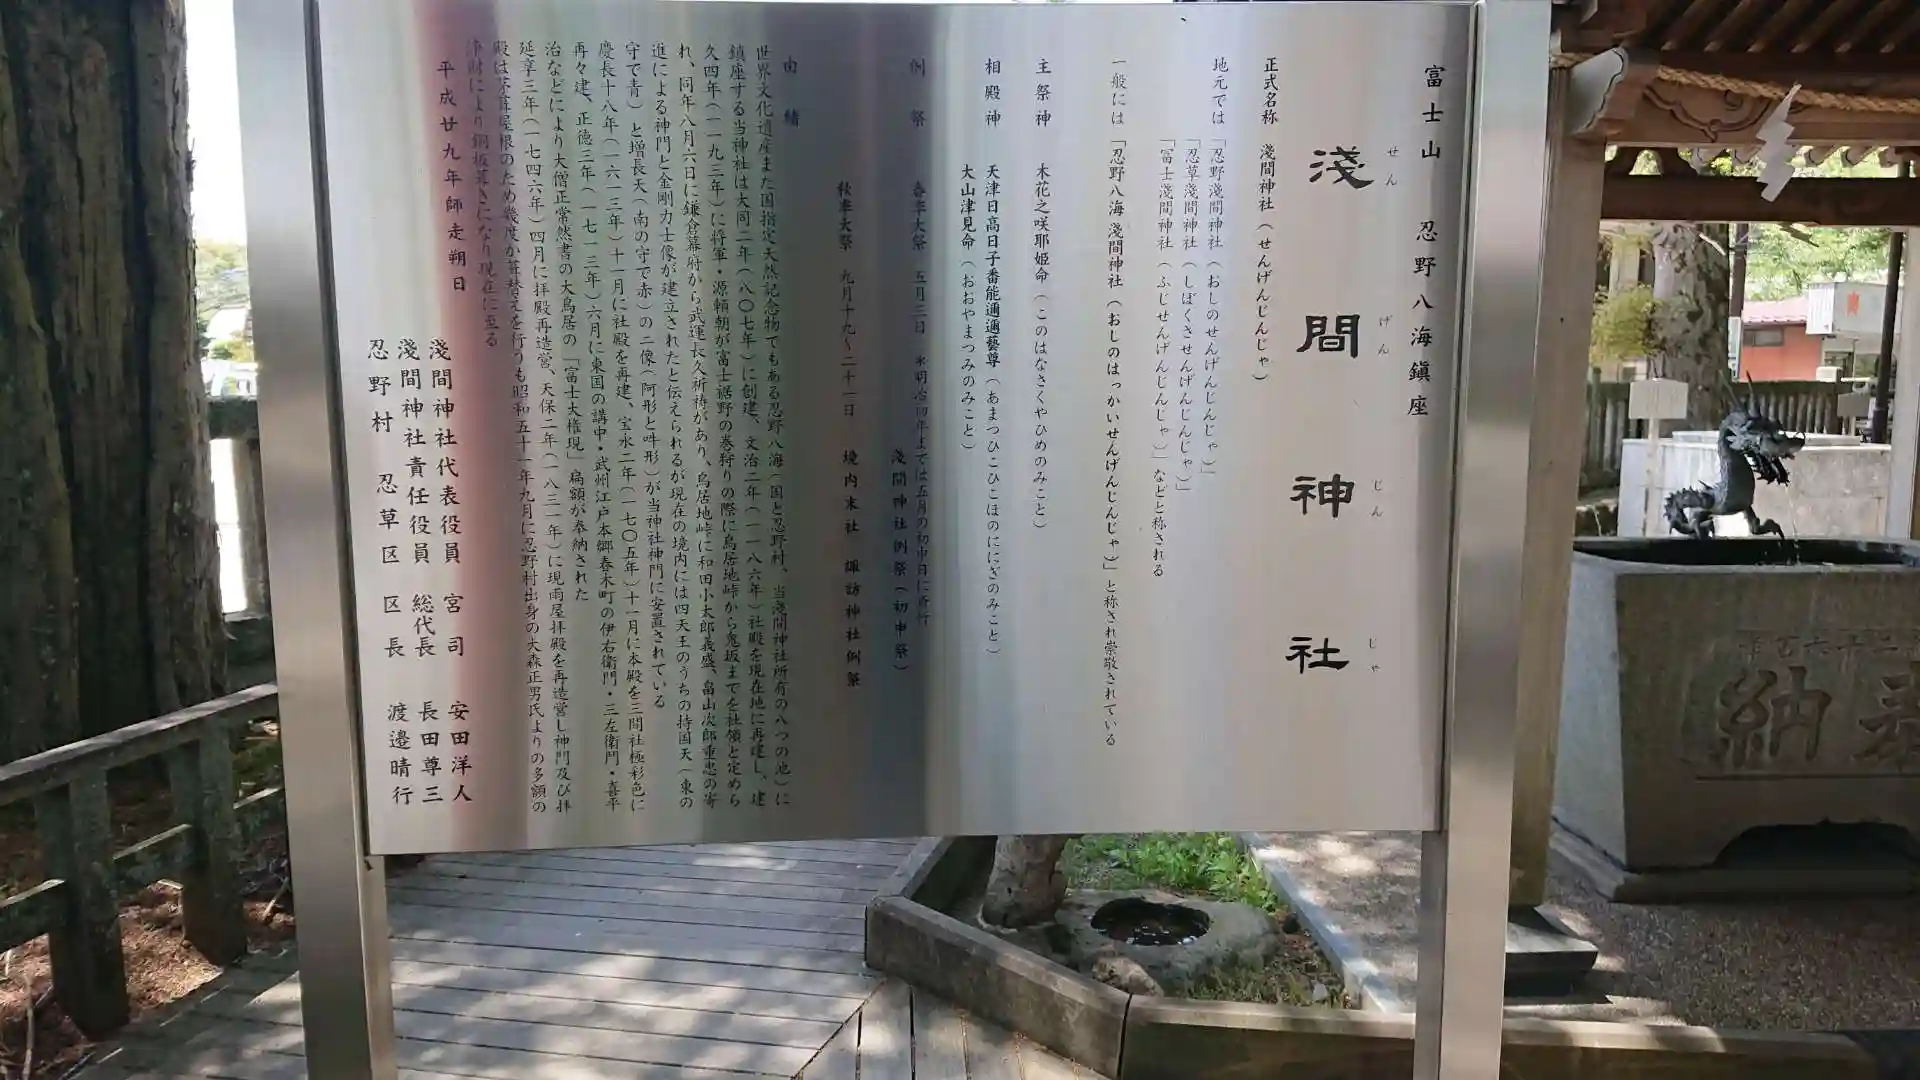 富士山　忍野八海鎮座
淺間神社
せんげんじんじゃ
正式名称　淺間神社（せんげんじんじゃ）
地元では「忍野淺間神社（おしのせんげんじんじゃ）」
「忍草淺間神社（しぼくさせんげんじんじゃ）」
「富士淺間神社（ふじせんげんじんじゃ）」などと称される
一般には「忍野八海淺間神社（おしのはっかいせんげんじんじゃ）」と称され崇敬されている
主祭神　木花之咲耶姫命（このはなさくやひめのみこと）
相殿神　天津日高日子番能邇邇藝尊（あまつひこひこほのににぎのみこと）
大山津見命（おおやまつみのみこと）
例祭　春季大祭　五月三日　※明治初年までは五月の初申日に斎行
淺間神社例祭（初申祭）
秋季大祭　九月十九～二十一日　境内末社　諏訪神社例祭
由緒
世界文化遺産また国指定天然記念物でもある忍野八海（国と忍野村、当淺間神社所有の八つの池）に
鎮座する当神社は大同二年（八〇七年）に創建、文治二年（一一八六年）社殿を現在地に再建し、建
久四年（一一九三年）に将軍・源頼朝が富士裾野の巻狩りの際に鳥居地峠から鬼坂までを社領と定めら
れ、同年八月六日に鎌倉幕府から武運長久祈祷があり、鳥居地峠に和田小太郎義盛、畠山次郎重忠の寄
進による神門と金剛力士像が建立されたと伝えられるが現在の境内には四天王のうちの持国天（東の
守で青）と増長天（南の守で赤）の二像（阿形と吽形）が当神社神門に安置されている
慶長十八年（一六一三年）十一月に社殿を再建、宝永二年（一七〇五年）十一月に本殿を三間社極彩色に
再々建、正徳三年（一七一三年）六月に東国の講中・武州江戸本郷春木町の伊右衛門・三左衛門・喜平
治などにより大僧正常然書の大鳥居の「冨士大権現」扁額が奉納された
延享三年（一七四六年）四月に拝殿再造営、天保二年（一八三一年）に現雨屋拝殿を再造営し神門及び拝
殿は茅葺屋根のため幾度か葺替えを行うも昭和五十一年九月に忍野村出身の大森正男氏よりの多額の
浄財により銅板葺きになり現在に至る
平成廿九年師走朔日
淺間神社代表役員　宮司　安田洋人
淺間神社責任役員　総代長　長田尊三
忍野村　忍草区　区長　渡邉晴行
奉納